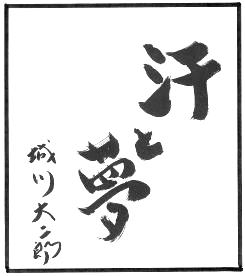 汗と夢
城川大二郎